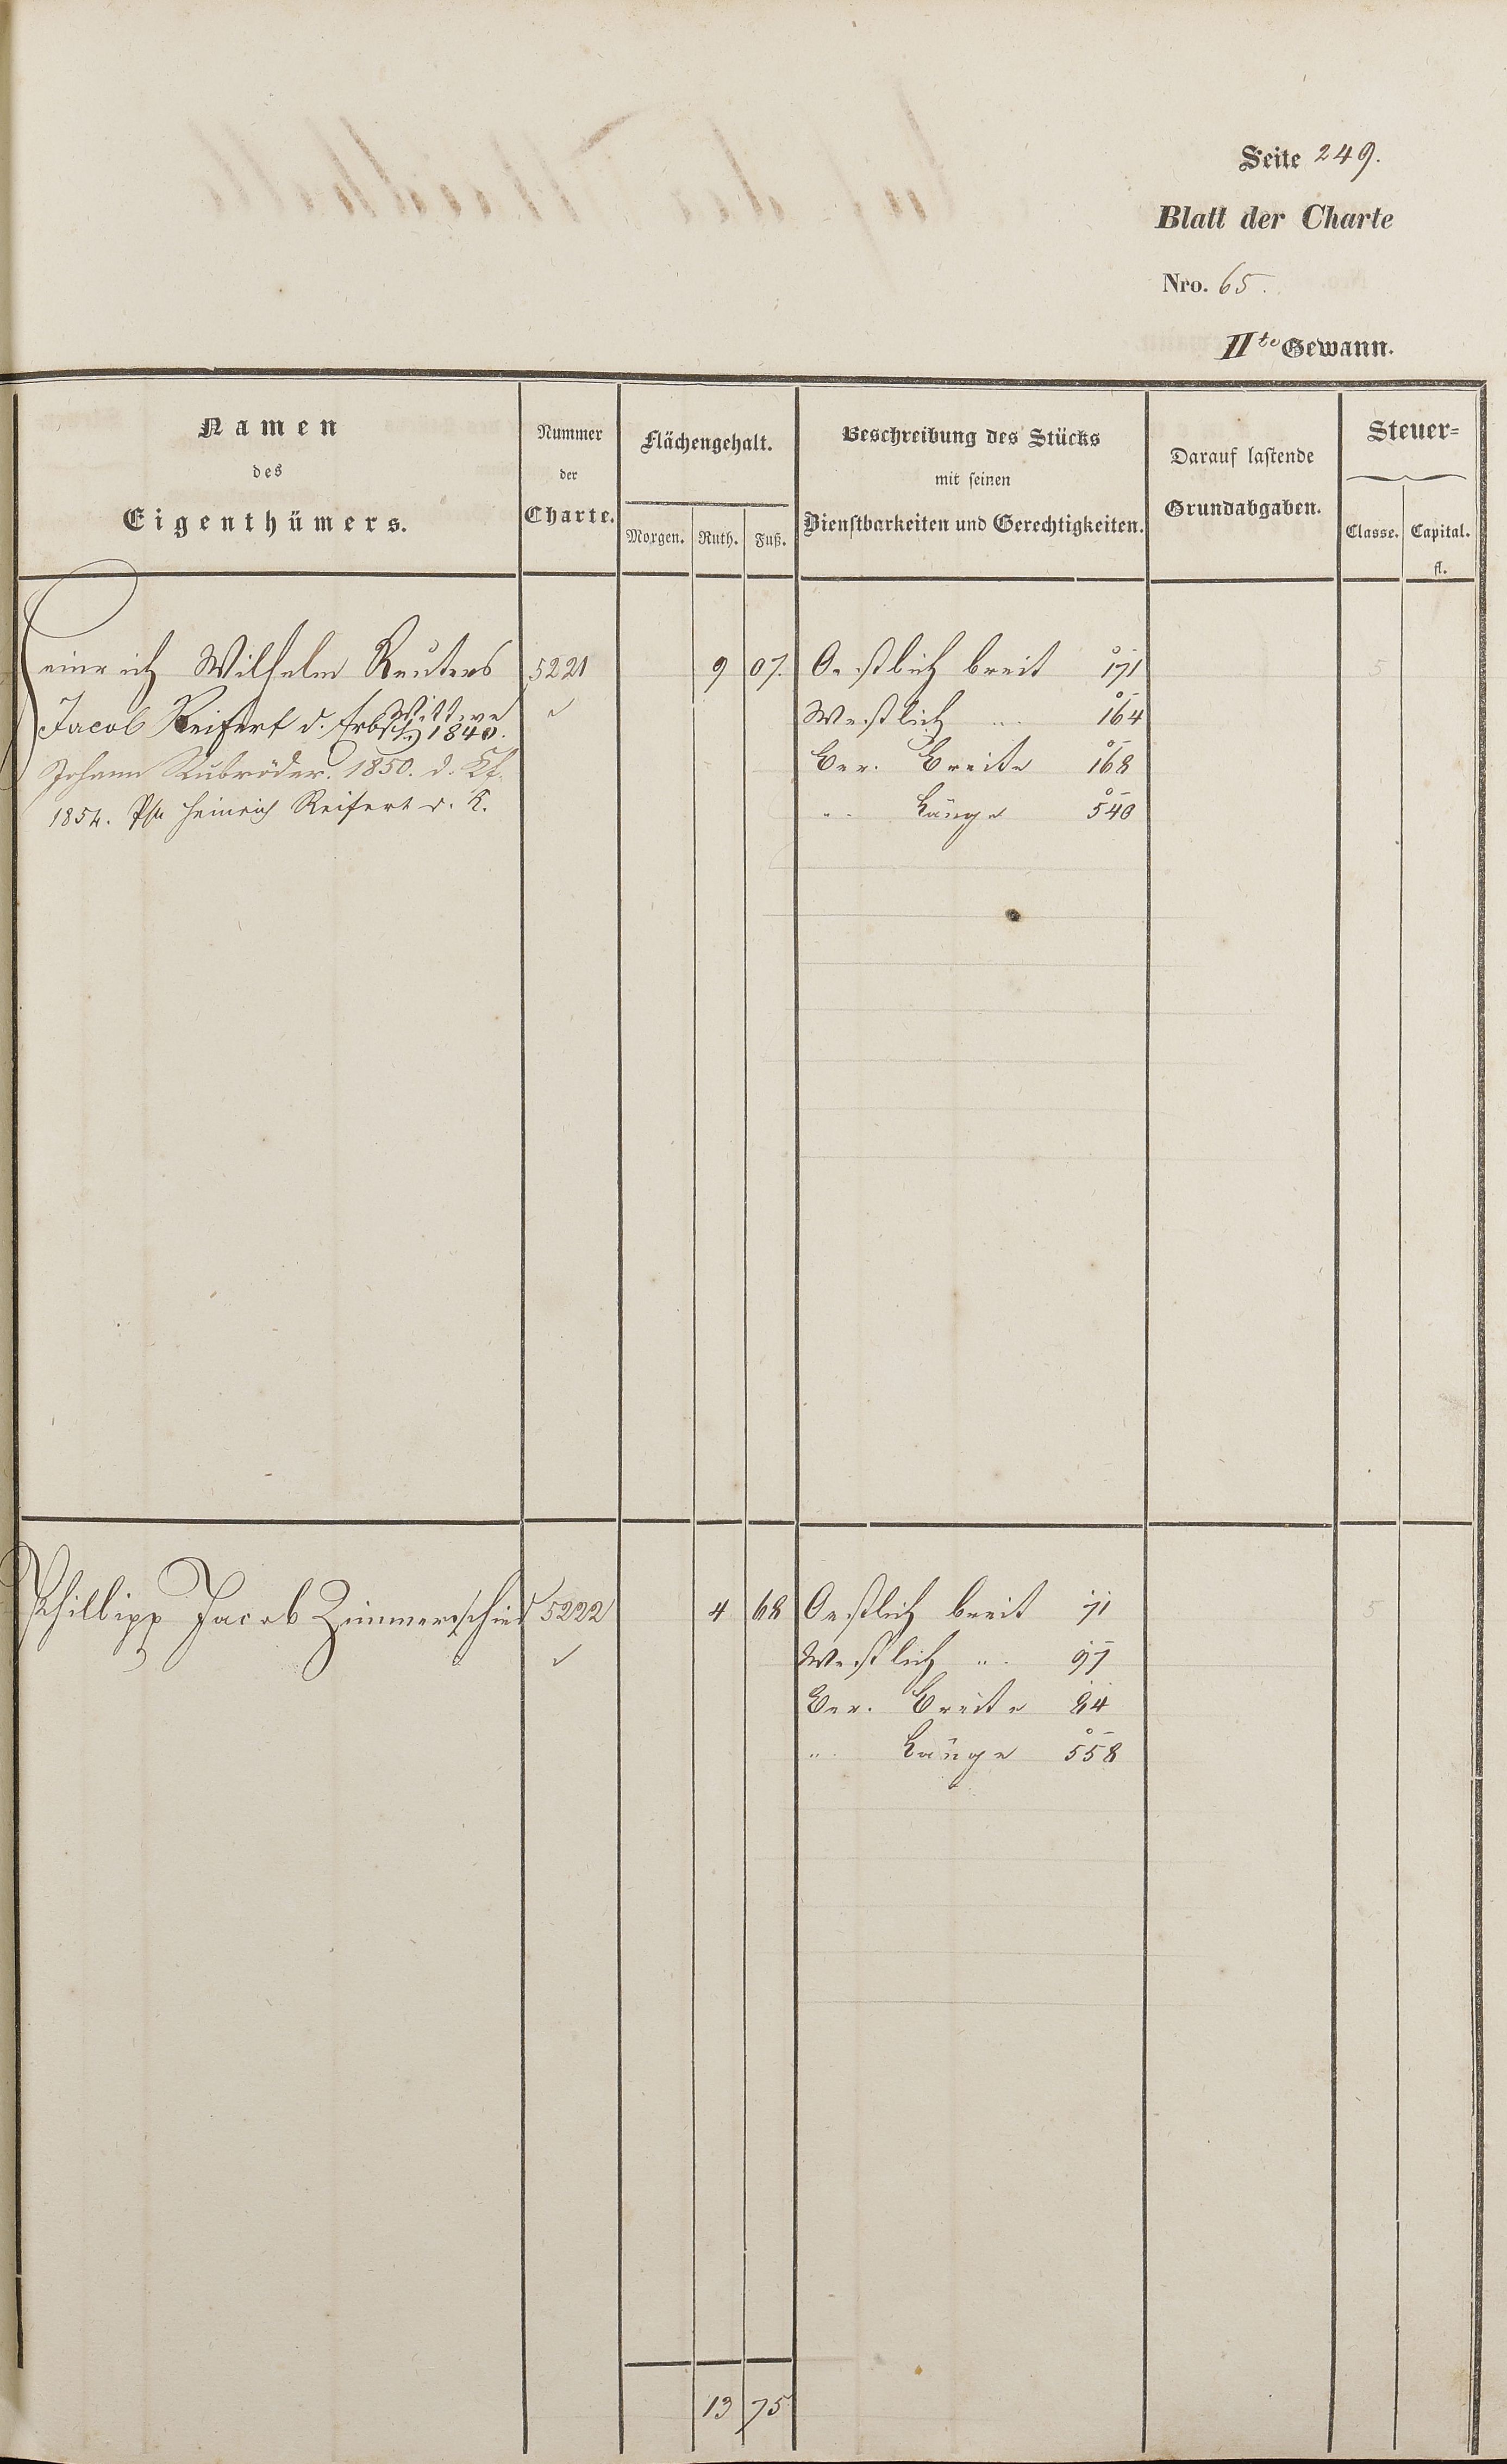 Seite 249.
Blatt der Charte
Nro. 65.
IIte Gewann.
Namen
des
Eigenthümers.
Nummer
der
Charte.
Flächengehalt.
Morgen. Ruth. Fuß.
Beschreibung des Stücks
mit seinen
Dienstbarkeiten und Gerechtigkeiten.
Darauf lastende
Grundabgaben.
Steuer-
Classe. Capital.
fl.
Heinrich Wilhelm Reuters 5221 9 07. Oestlich breit 171 5
Wittwe
Jacob Reifert d. Erbsch. 1840. Westlich " 164
Johann Kubröder. 1850. d. Kf. Ber. Breite 168
1854. Heinrich Reifert d. K. " Länge 540
Phillipp Jacob Zimmerschied 5222 4 68 Oestlich breit 71 5
Westlich " 97
Ber. Breite 84
" Länge 558
13 75